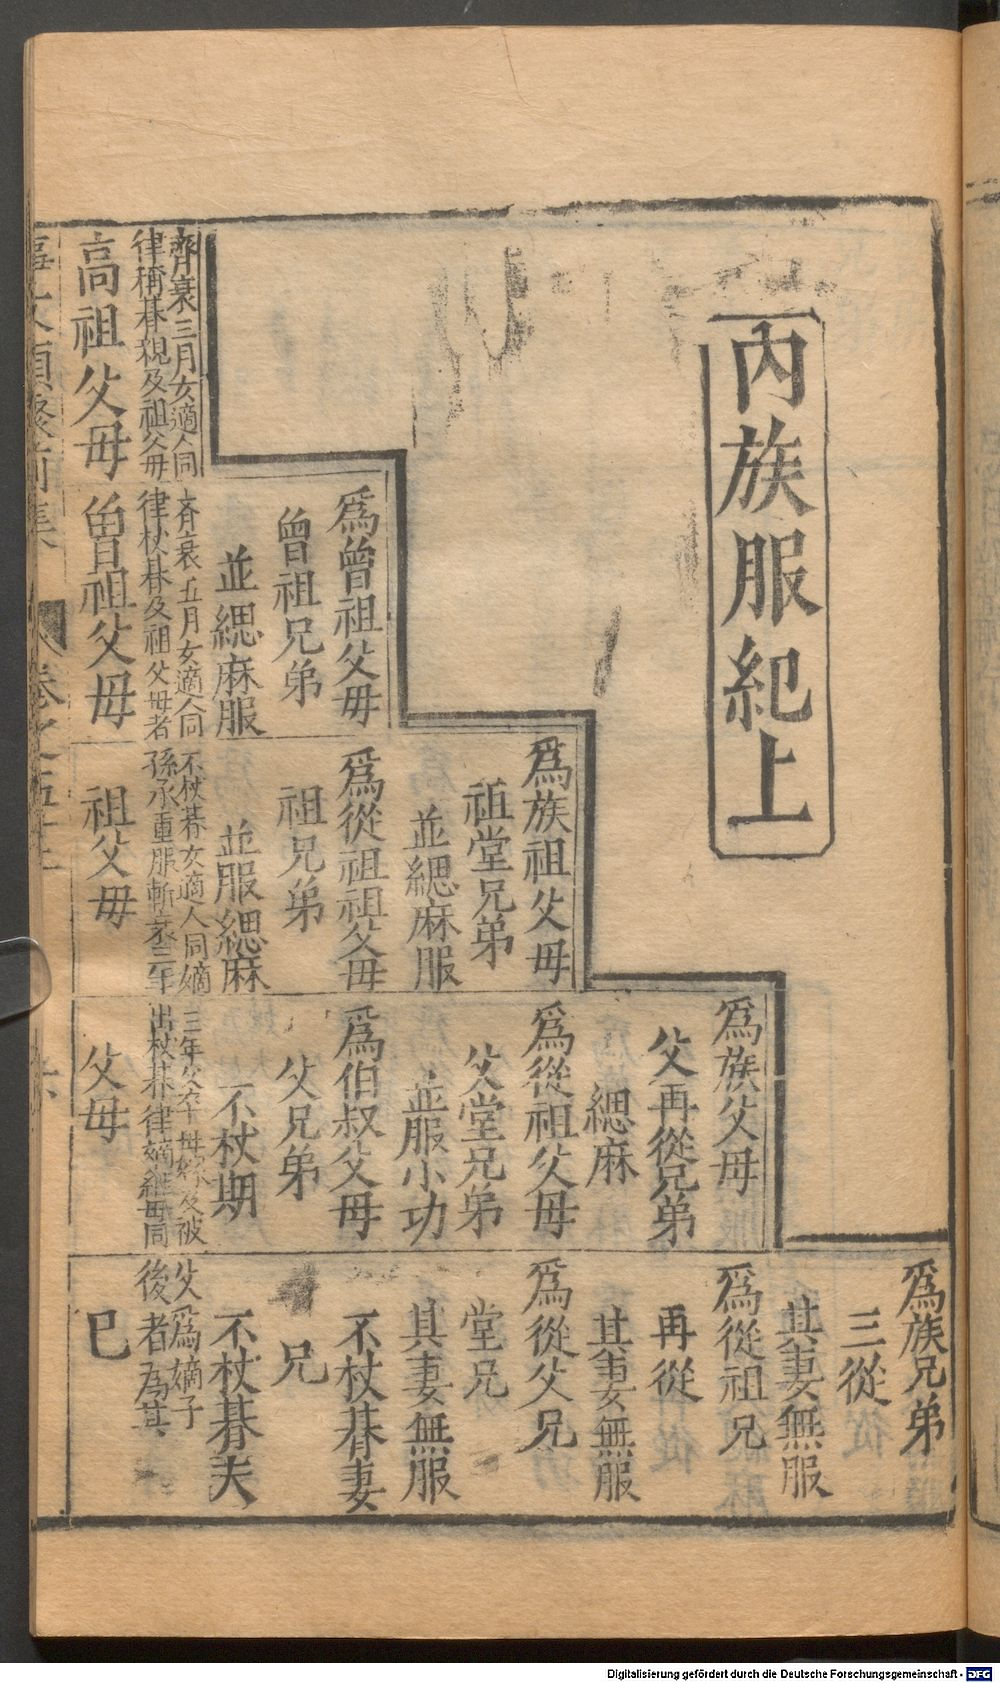 內族服紀上
爲族兄弟
三從
其妻無服
爲族父母
父再從兄弟
緦麻
爲從祖兄
再從
其妻無服
爲族祖父母
祖堂兄弟
並緦麻服
爲從祖父母
父堂兄弟
並服小功
爲從父兄
堂兄
其妻無服
爲曾祖父母
曾祖兄弟
並緦麻服
爲從祖祖父母
祖兄弟
並服緦麻
爲伯叔父母
父兄弟
不杖期
不杖朞妻
兄
不杖朞夫
齊衰三月女適人同
律稱朞親及祖父母
高祖父母
齊衰五月女適人同
律杖朞及祖父母者
曾祖父母
不杖朞女適人同嫡
孫承重服斬衰三年
祖父母
三年父卒母嫁及被
出杖朞律嫡繼母同
父母
父爲嫡子
後者為其
巳
事文類聚前集
卷之五十
Digitalisierung gefördert durch die Deutsche Forschungsgemeinschaft - DFG